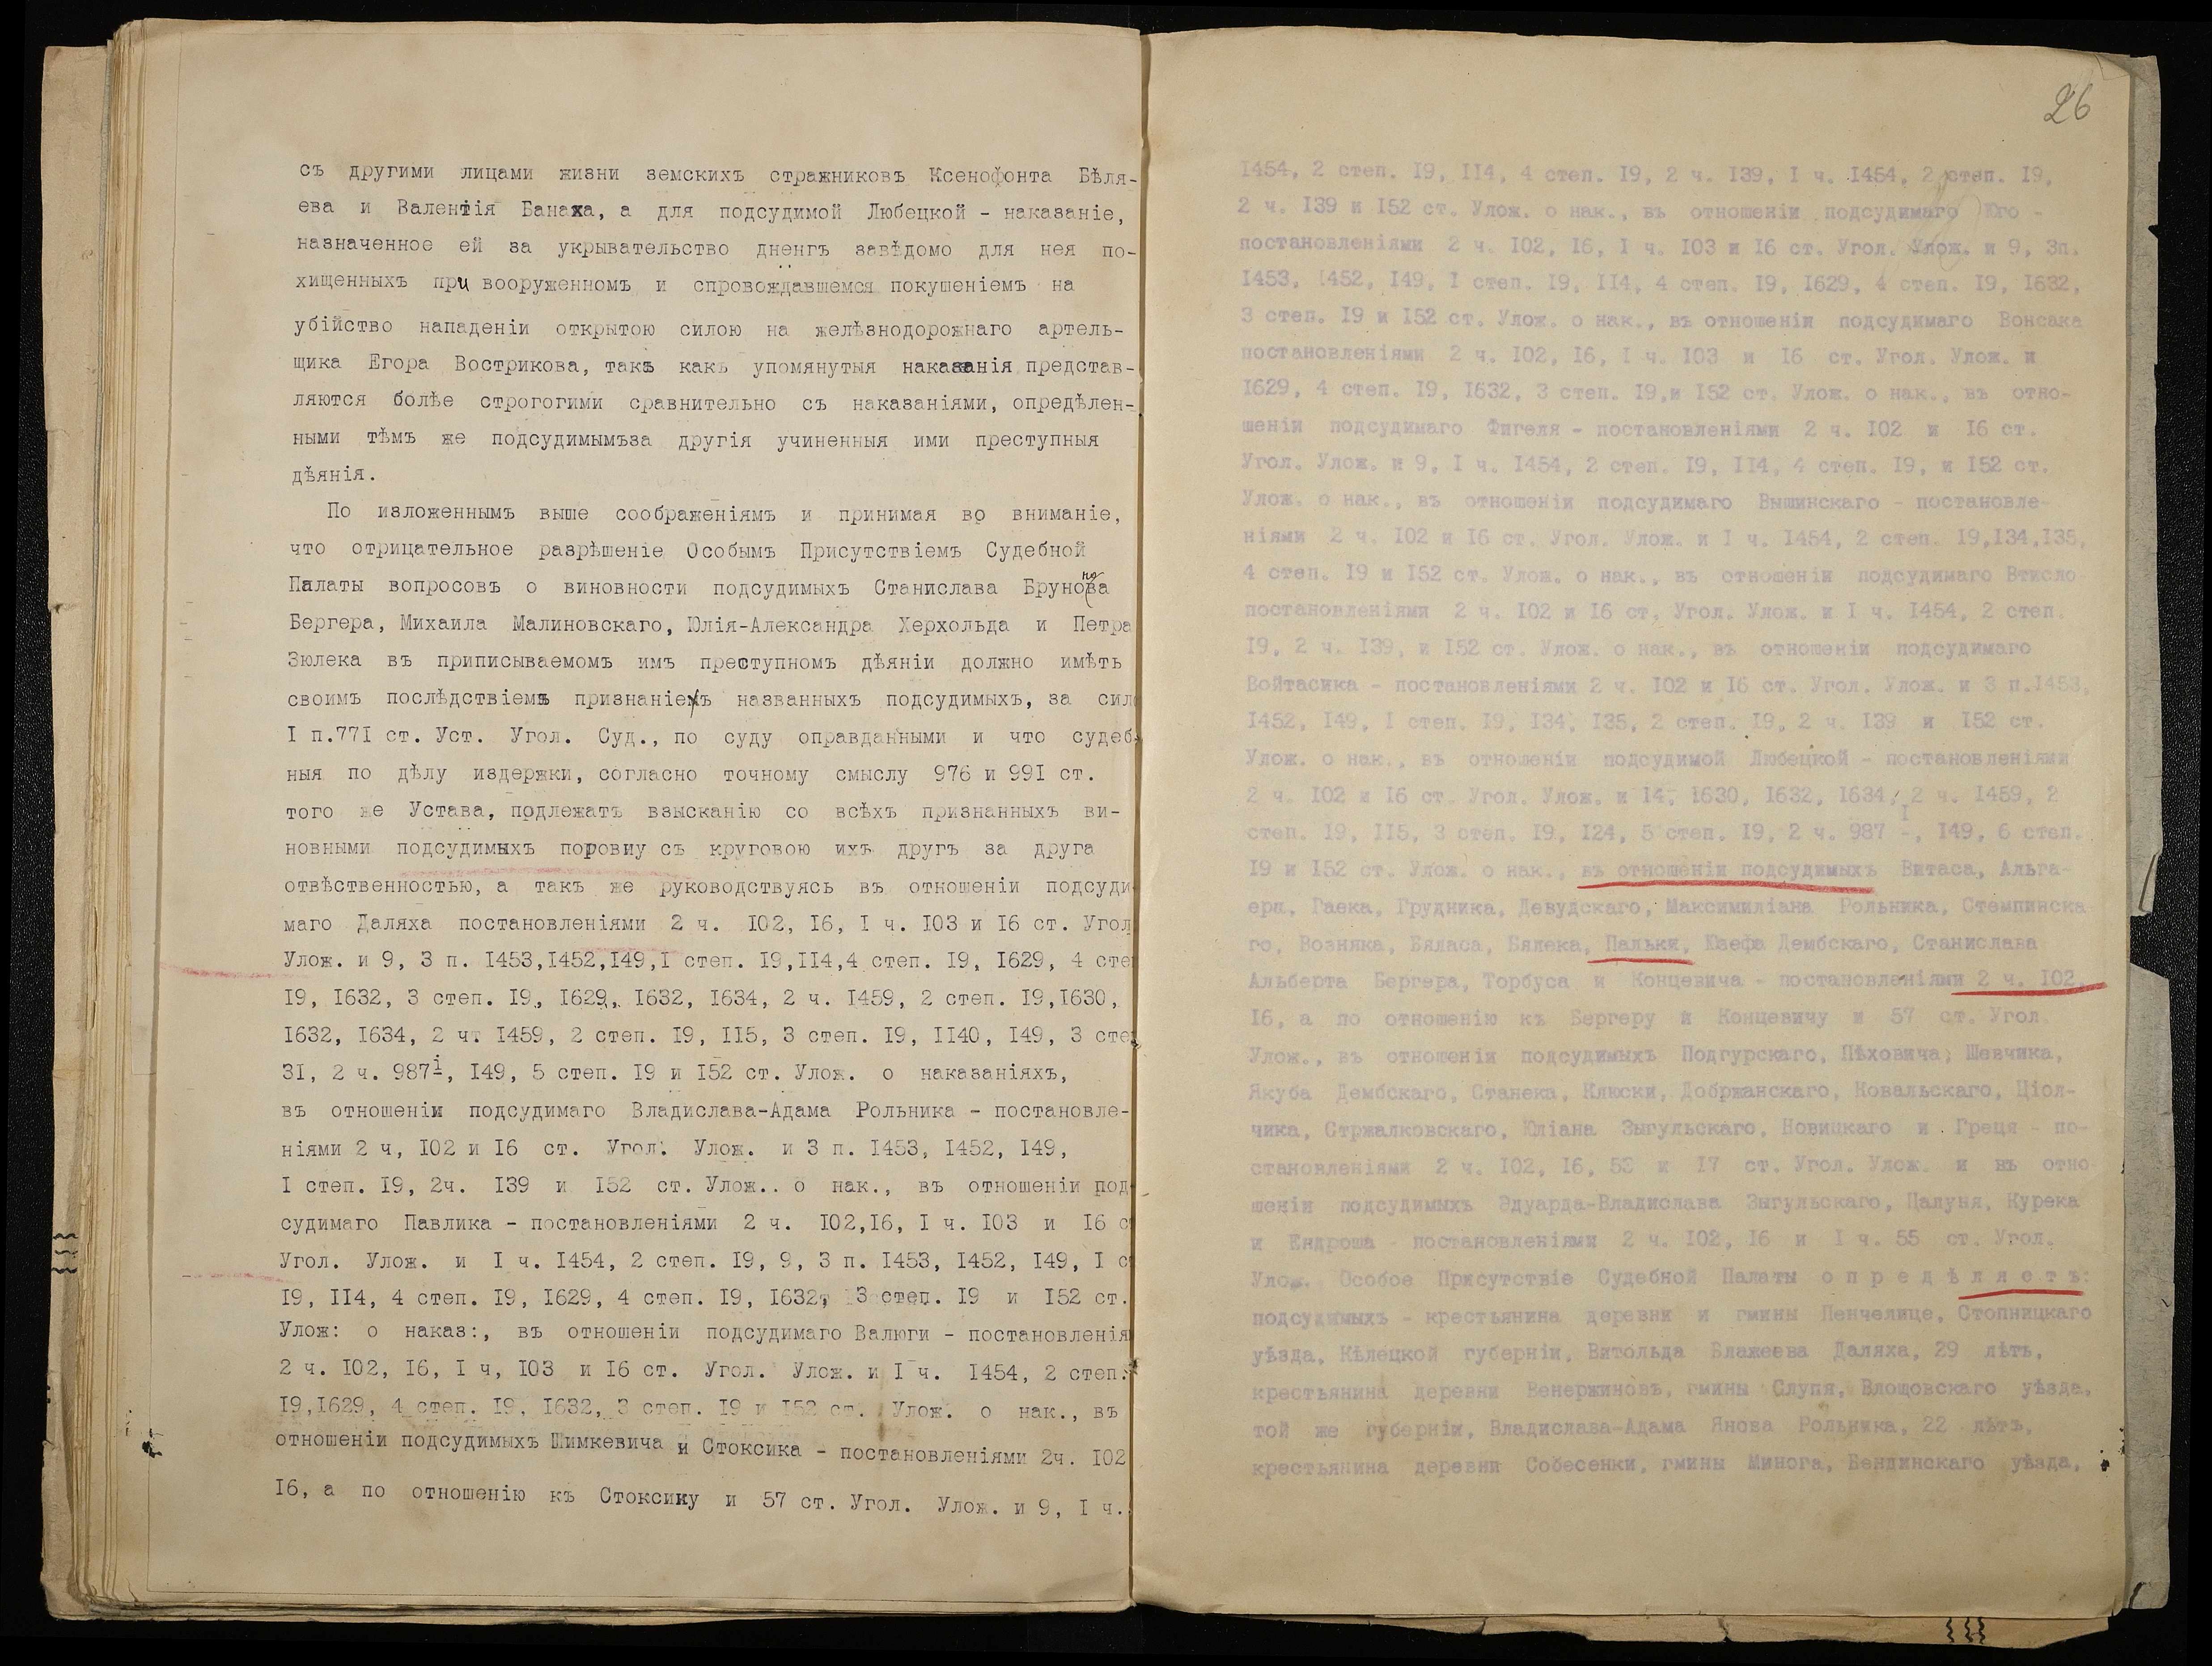 съ другими лицами жизни земскихъ стражниковъ Ксенофонта Бѣля-
ева и Валентія Банаха, а для подсудимой Любецкой - наказаніе,
назначенное ей за укрывательство дненгъ завѣдомо для нея по-
хищенныхъ при вооруженномъ и спровождавшемся покушеніемъ на
убійство нападеніи открытою силою на желѣзнодорожнаго артель-
щика Егора Вострикова, такъ какъ упомянутыя наказанія представ-
ляются болѣе строгогими сравнительно съ наказаніями, опредѣлен-
ными тѣмъ же подсудимымъза другія учиненныя ими преступныя
дѣянія.
По изложеннымъ выше соображеніямъ и принимая во вниманіе,
что отрицательное разрѣшеніе Особымъ Присутствіемъ Судебной
Палаты вопросовъ о виновности подсудимыхъ Станислава Бруно
Бергера, Михаила Малиновскаго, Юлія-Александра Херхольда и Петра
Зюлека въ приписываемомъ имъ преступномъ дѣяніи должно имѣть
своимъ послѣдствіемъ признаніе названныхъ подсудимыхъ, за сил
I п.77I ст. Уст. Угол. Суд., по суду оправданными и что судеб
ныя по дѣлу издержки, согласно точному смыслу 976 и 99I ст.
того же Устава, подлежатъ взысканію со всѣхъ признанныхъ ви-
новными подсудимыхъ поровну съ круговою ихъ другъ за друга
отвѣственностью, а такъ же руководствуясь въ отношеніи подсуди
маго Даляха постановленіями 2 ч. I02, I6, I ч. I03 и I6 ст. Угол
Улож. и 9, 3 п. I453,I452,I49,I степ. I9,II4,4 степ. I9, I629, 4 сте
I9, I632, 3 степ. I9, I629, I632, I634, 2 ч. I459, 2 степ. I9,I630,
I632, I634, 2 ч. I459, 2 степ. I9, II5, 3 степ. I9, II40, I49, 3 сте
3I, 2 ч. 987¹, I49, 5 степ. I9 и I52 ст. Улож. о наказаніяхъ,
въ отношеніи подсудимаго Владислава-Адама Рольника - постановле-
ніями 2 ч, I02 и I6 ст. Угол. Улож. и 3 п. I453, I452, I49,
I степ. I9, 2ч. I39 и I52 ст. Улож.. о нак., въ отношеніи под
судимаго Павлика - постановленіями 2 ч. I02,I6, I ч. I03 и I6 с
Угол. Улож. и I ч. I454, 2 степ. I9, 9, 3 п. I453, I452, I49, I с
I9, II4, 4 степ. I9, I629, 4 степ. I9, I632, 3 степ. I9 и I52 ст.
Улож: о наказ:, въ отношеніи подсудимаго Валюги - постановленія
2 ч. I02, I6, I ч, I03 и I6 ст. Угол. Улож. и I ч. I454, 2 степ.
I9,I629, 4 степ. I9, I632, 3 степ. I9 и I52 ст. Улож. о нак., въ
отношеніи подсудимыхъ Шимкевича и Стоксика - постановленіями 2ч. I02
I6, а по отношенію къ Стоксику и 57 ст. Угол. Улож. и 9, I ч.
26
I454, 2 степ. I9, II4, 4 степ. I9, 2 ч. I39, I ч. I454, 2 степ. I9,
2 ч. I39 и I52 ст. Улож. о нак., въ отношеніи подсудимаго Юго -
постановленіями 2 ч. I02, I6, I ч. I03 и I6 ст. Угол. Улож. и 9, 3п.
I453, I452, I49, I степ. I9, II4, 4 степ. I9, I629, 4 степ. I9, I632,
3 степ. I9 и I52 ст. Улож. о нак., въ отношеніи подсудимаго Вонсака
постановленіями 2 ч. I02, I6, I ч. I03 и I6 ст. Угол. Улож. и
I629, 4 степ. I9, I632, 3 степ. I9,и I52 ст. Улож. о нак., въ отно-
шеніи подсудимаго Фигеля - постановленіями 2 ч. I02 и I6 ст.
Угол. Улож. и 9, I ч. I454, 2 степ. I9, II4, 4 степ. I9, и I52 ст.
Улож. о нак., въ отношеніи подсудимаго Вышинскаго - постановле-
ніями 2 ч. I02 и I6 ст. Угол. Улож. и I ч. I454, 2 степ. I9,I34,I35,
4 степ. I9 и I52 ст. Улож. о нак., въ отношеніи подсудимаго Втисло
постановленіями 2 ч. I02 и I6 ст. Угол. Улож. и I ч. I454, 2 степ.
I9, 2 ч. I39, и I52 ст. Улож. о нак., въ отношеніи подсудимаго
Войтасика - постановленіями 2 ч. I02 и I6 ст. Угол. Улож. и 3 п.I453,
I452, I49, I степ. I9, I34, I35, 2 степ. I9, 2 ч. I39 и I52 ст.
Улож. о нак., въ отношеніи подсудимой Любецкой - постановленіями
2 ч. I02 и I6 ст. Угол. Улож. и I4, I630, I632, I634, 2 ч. I459, 2
степ. I9, II5, 3 степ. I9, I24, 5 степ. I9, 2 ч. 987 ¹, I49, 6 степ.
I9 и I52 ст. Улож. о нак., въ отношеніи подсудимыхъ Витаса, Альга-
ери, Гаека, Грудника, Девудскаго, Максимиліана Рольника, Стемпинска-
го, Возняка, Бяласа, Бялека, Пальки, Юзефа Дембскаго, Станислава
Альберта Бергера, Торбуса и Концевича - постановленіями 2 ч. I02,
I6, а по отношенію къ Бергеру и Концевичу и 57 ст. Угол.
Улож., въ отношеніи подсудимыхъ Подгурскаго, Пѣховича, Шевчика,
Якуба Дембскаго, Станека, Клюски, Добржанскаго, Ковальскаго, Ціол-
чика, Стржалковскаго, Юліана Зыгульскаго, Новицкаго и Греця - по-
становленіями 2 ч. I02, I6, 53 и I7 ст. Угол. Улож. и въ отно-
шеніи подсудимыхъ Эдуарда-Владислава Зыгульскаго, Цалуня, Курека
и Ендроша - постановленіями 2 ч. I02, I6 и I ч. 55 ст. Угол.
Улож. Особое Присутствіе Судебной Палаты о п р е д ѣ л я е т ъ:
подсудимыхъ - крестьянина деревни и гмины Пенчелице, Стопницкаго
уѣзда, Кѣлецкой губерніи, Витольда Блажеева Даляха, 29 лѣтъ,
крестьянина деревни Венержиновъ, гмины Слупя, Влощовскаго уѣзда,
той же губерніи, Владислава-Адама Янова Рольника, 22 лѣтъ,
крестьянина деревни Собесенки, гмины Минога, Бендинскаго уѣзда,